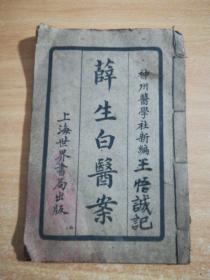 神州醫學社新編王悟誠記
薛生白醫案
上海世界書局出版